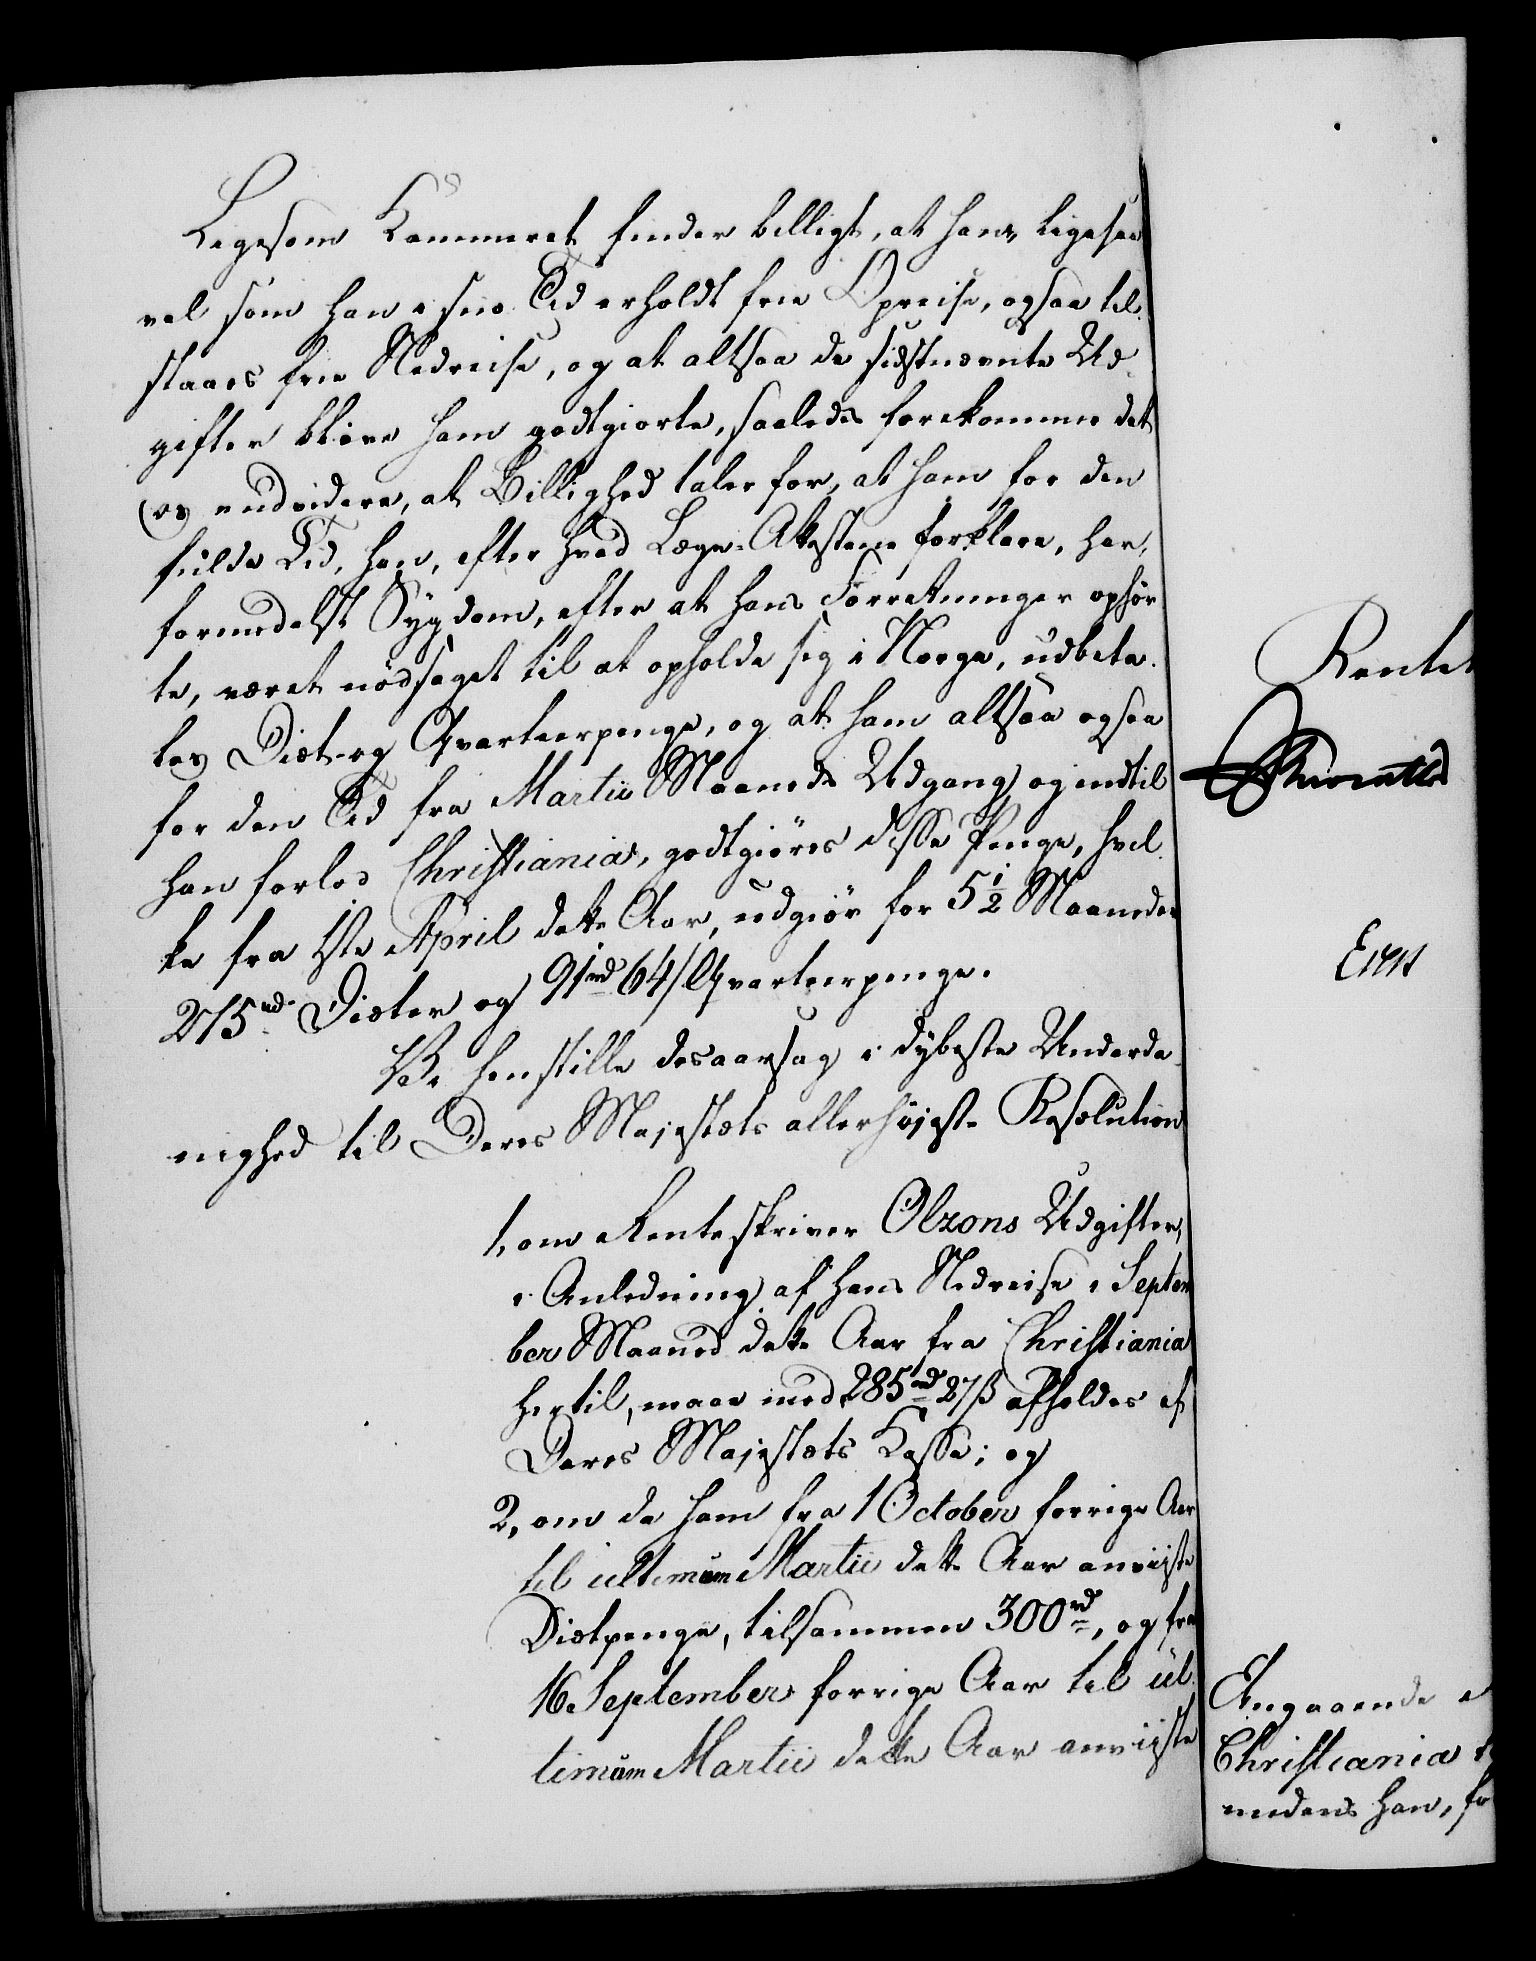 Ligesom Kammeret finder billigt, at ham, ligesaa
vel som han i sin Tid erholdt frie Opreise, ogsaa til-
staaes frie Nedreise, og at altsaa de sidstnævnte Ud-
gifter blive ham godtgiorte, saaledes forekommer det
os endvidere, at Billighed taler for, at ham for den
fulde Tid, han, efter hvad Læge-Attesterne forklare, har,
formedelst Sygdom, efter at hans Forretninger ophør-
te, været nødsaget til at opholde sig i Norge, udbeta-
les Diæt- og Qvarteerpenge, og at ham altsaa ogsaa
for den Tid fra Martii Maaneds Udgang og indtil
han forlod Christiania, godtgiøres disse Penge, hvil-
ke fra 1ste April dette Aar, udgiør for 5½ Maaneder
275 rd. Diæter og 91 rd 64 ß Qvarteerpenge.
Vi henstille desaarsag i dybeste Underda-
nighed til Deres Majestæts allerhøjeste Resolution
1, om Renteskriver Olzons Udgifter,
i Anledning af hans Nedreise i Septem
ber Maaned dette Aar fra Christiania
hertil, maae med 285 rd 27 ß afholdes af
Deres Majestæts Casse; og
2, om de ham fra 1 October forrige Aar
til ultimum Martii dette Aar anviiste
Diætpenge, tilsammen 300 rd, og fra
16 September forrige Aar til ul-
timum Martii dette Aar anviiste
Rentek
Angaaende
Christiania
medens han, fo